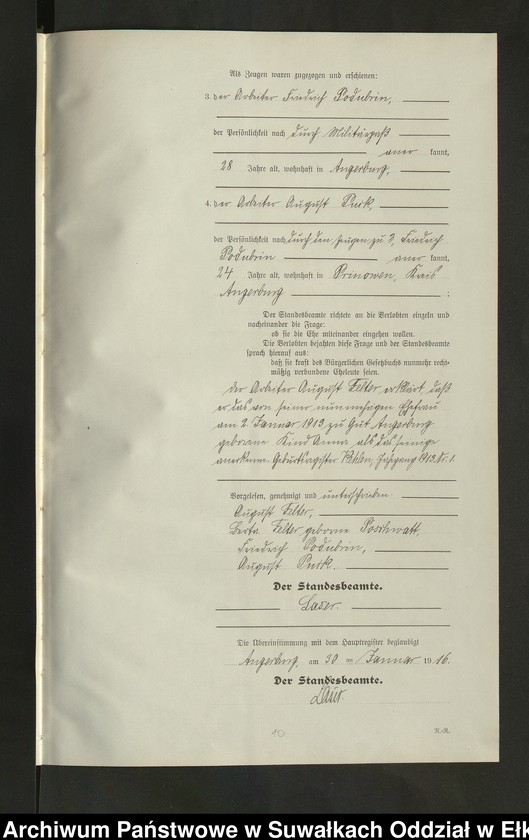 Als Zeugen waren zugezogen und erschienen:
3. der Arbeiter Friedrich Podubrin,
der Persönlichkeit nach durch Militärpaß
aner kannt,
28 Jahre alt, wohnhaft in Angerburg,
4. der Arbeiter August Purk,
der Persönlichkeit nach durch den Zeugen zu 3, Friedrich
Podubrin aner kannt,
24 Jahre alt, wohnhaft in Prinowen, Kreis
Angerburg ;
Der Standesbeamte richtete an die Verlobten einzeln und
nacheinander die Frage:
ob sie die Ehe miteinander eingehen wollen.
Die Verlobten bejahten diese Frage und der Standesbeamte
sprach hierauf aus:
daß sie kraft des Bürgerlichen Gesetzbuchs nunmehr recht-
mäßig verbundene Eheleute seien.
Der Arbeiter August Felter erklärt, daß
er das von seiner nunmehrigen Ehefrau
am 2. Januar 1913 zu Gut Angerburg
geborene Kind Anna als das seinige
anerkenne. Geburtsregister Jahrgang 1913 Nr. 1.
Vorgelesen, genehmigt und unterschrieben
August Felter,
Berta Felter geborene Poschwatt,
Friedrich Podubrin,
August Purk.
Der Standesbeamte.
Laser.
Die Übereinstimmung mit dem Hauptregister beglaubigt
Angerburg, am 30 ten Januar 1916.
Der Standesbeamte.
Laser.
10
R.-R.
Archiwum Państwowe w Suwałkach Oddział w Ełk